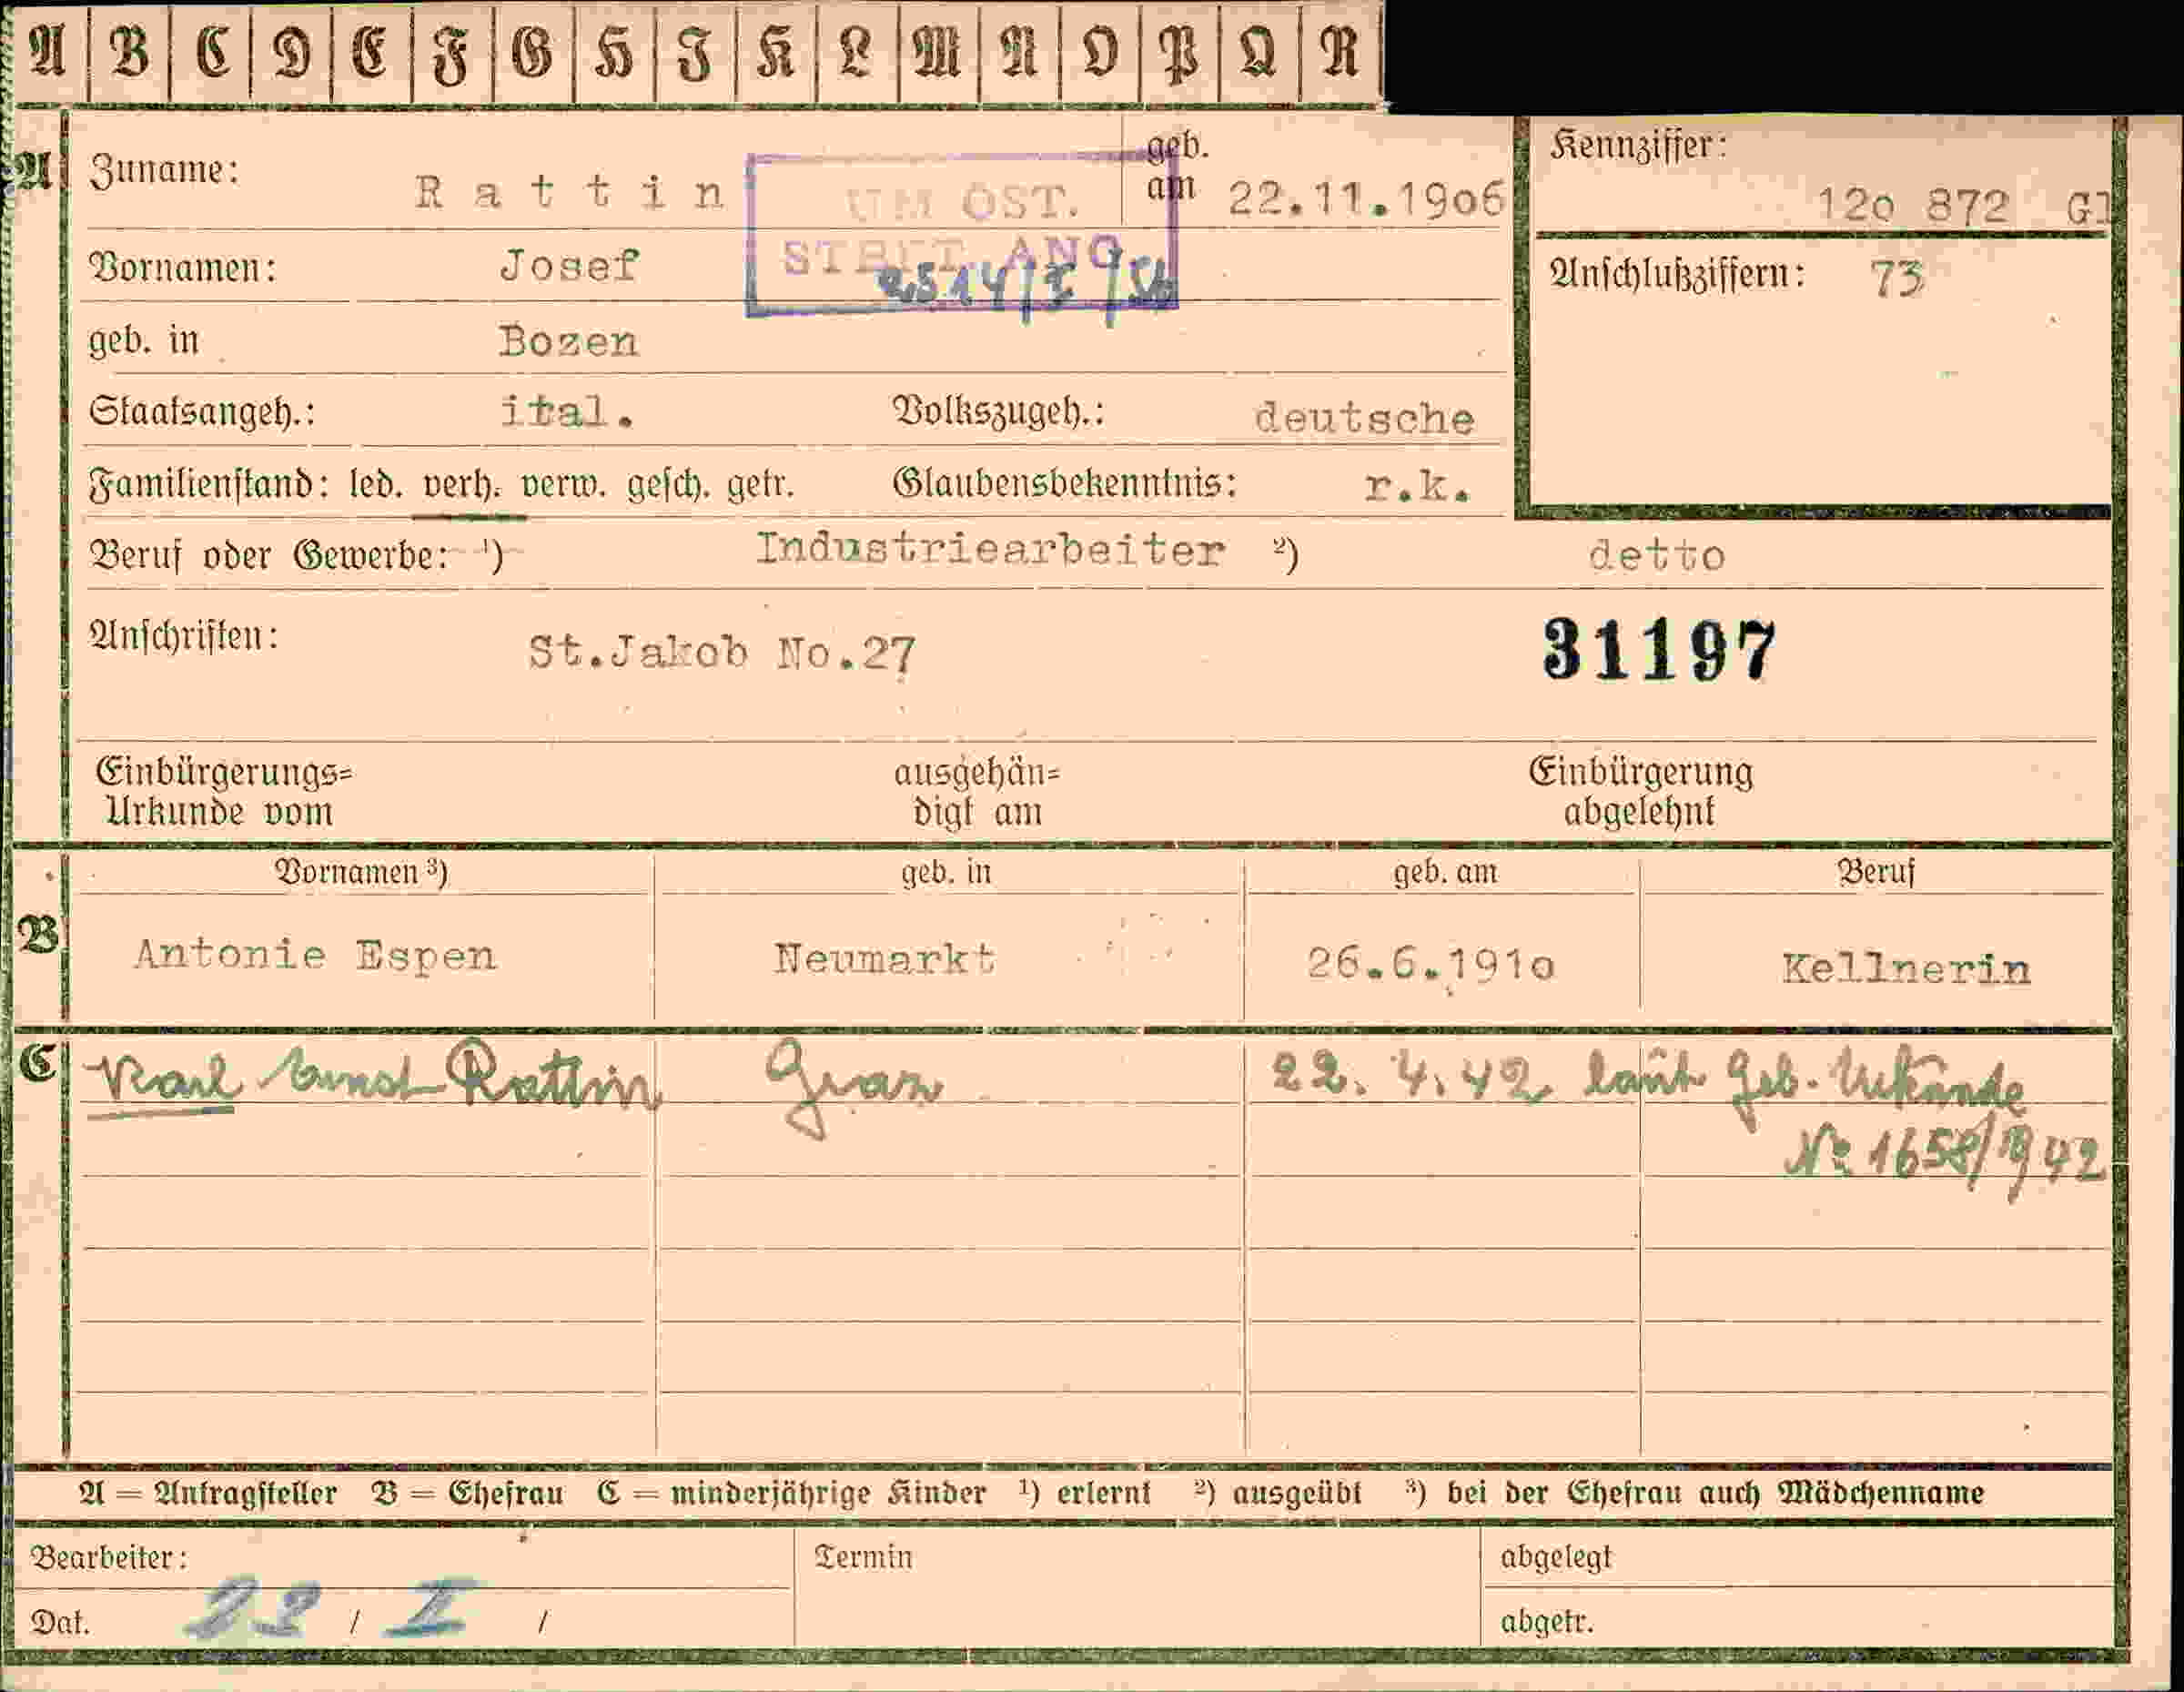 A B C D E F G H I K L M N O P Q R
A Zuname: Rattin geb. am 22.11.19o6 Kennziffer: 12o 872 Gl
UM ÖST.
Vornamen: Josef STBÜT. ANG. Anschlußziffern: 73
2514/I/56
geb. in Bozen
Staatsangeh.: ital. Volkszugeh.: deutsche
Familienstand: led. verh. verw. gesch. getr. Glaubensbekenntnis: r.k.
Beruf oder Gewerbe: ¹) Industriearbeiter ²) detto
Anschriften: St.Jakob No.27 31197
Einbürgerungs= ausgehän= Einbürgerung
Urkunde vom digt am abgelehnt
Vornamen ³) geb. in geb. am Beruf
B Antonie Espen Neumarkt 26.6.191o Kellnerin
C Karl Ernst Rattin Graz 22. 4. 42 laut Geb. Urkunde
№ 1658/1942
A = Antragsteller B = Ehefrau C = minderjährige Kinder ¹) erlernt ²) ausgeübt ³) bei der Ehefrau auch Mädchenname
Bearbeiter: Termin abgelegt
Dat. 22 / I / abgetr.